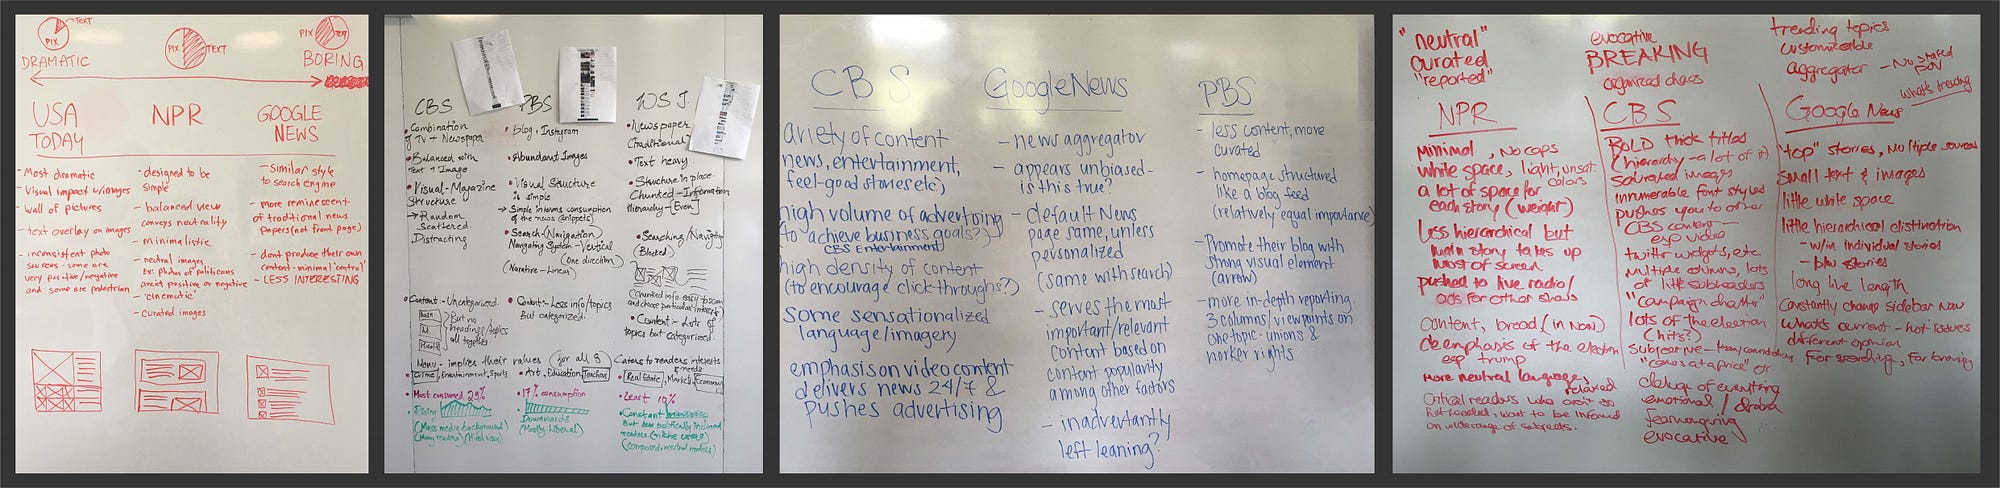 TEXT
PIX
DRAMATIC
PIX
TEXT
PIX
TEXT
BORING
USA
TODAY
- Most dramatic
- Visual impact w/images
- Wall of pictures
- text overlay on images
- inconsistent photo
sources - some are
very positive/negative
and some are pedestrian
NPR
- designed to be
simple
- balanced view
conveys neutrality
- minimalistic
- neutral images
Ex: photos of politicians
arent positive or negative
- "cinematic"
- curated images
GOOGLE
NEWS
- Similar style
to search engine
- more reminescent
of traditional news
papers (not front page)
- dont produce their own
content - minimal 'control'
- LESS INTERESTING
CBS
• Combination
of TV + Newspaper
• Balanced with
Text + Image
• Visual - Magazine
Structure
→ Random
Scattered
Distracting
Content:- Uncategorized.
But no
headings/topics
all together.
Menu - implies their values (for all 3)
Crime, Entertainment, Sports
• Most consumed 23%
• Rising
(Mass media background)
PBS
• Blog + Instagram
• Abundant Images
• Visual Structure
is simple
→ Simple informs consumption
of the news (snippets)
• Search - (Navigation)
Navigating System - Vertical
(one direction)
(Narrative - Linear)
Less info/topics
But categorized.
• Art, Education, Teachers
• 17% consumption
Downwards
(Mostly Liberal)
WSJ.
• Newspaper
(traditional)
• Text heavy
• Structure in place.
Chunked - Information
Hierarchy - [Even]
• Searching/Navigation
(Blocked)
• Content:- Lots of
topics but categorized.
Caters to readers interests
& needs
• Real Estate, Markets, Economy
• Least 10%
• Constant
CBS
ariety of content
news, entertainment,
feel-good stories etc)
high volume of advertising
(to achieve business goals?)
CBS Entertainment
high density of content
(to encourage click-throughs?)
some sensationalized
language/imagery
emphasis on video content
delivers news 24/7 &
pushes advertising
Google News
- news aggregator
- appears unbiased -
is this true?
- default News
page same, unless
personalized
(same with search)
- serves the most
important/relevant
content based on
content popularity
among other factors
- inadvertantly
left leaning?
PBS
- less content, more
curated
- homepage structured
like a blog feed
(relatively equal importance)
- Promote their blog with
strong visual element
(arrow)
- more in-depth reporting
3 columns/viewpoints on
one topic - unions &
worker rights
"neutral"
curated
"reported"
NPR
Minimal, No caps
white space, light, unsat.
colors
a lot of space for
each story (weight)
Less hierarchical but
main story takes up
most of screen
pushed to live radio/
ads for other shows
Content, broad (in NOW)
de emphasis of the election
esp trump
More neutral language, relaxed
Critical readers who aren't so
hot headed, want to be informed
on wide range of subjects.
evocative
BREAKING
organized chaos
CBS
BOLD thick titles
(hierarchy - a lot of it)
saturated images
innumerable font styles
pushes you to other
CBS content -
esp video
twitter widgets, etc
multiple columns, lots
of little subheaders
"campaign chatter"
lots of the election
(hits?)
"comes at a price" etc.
emotional /
fearmongering
evocative
trending topics
customizable
aggregator - No stated
POV
what's trending
Google News
"top" stories, multiple sources
small text & images
little white space
little hierarchical distinction
- w/in individual stories
- b/w stories
long live length
Constantly change sidebar Now
What's current - hot issues
different opinion
For searching, For browsing